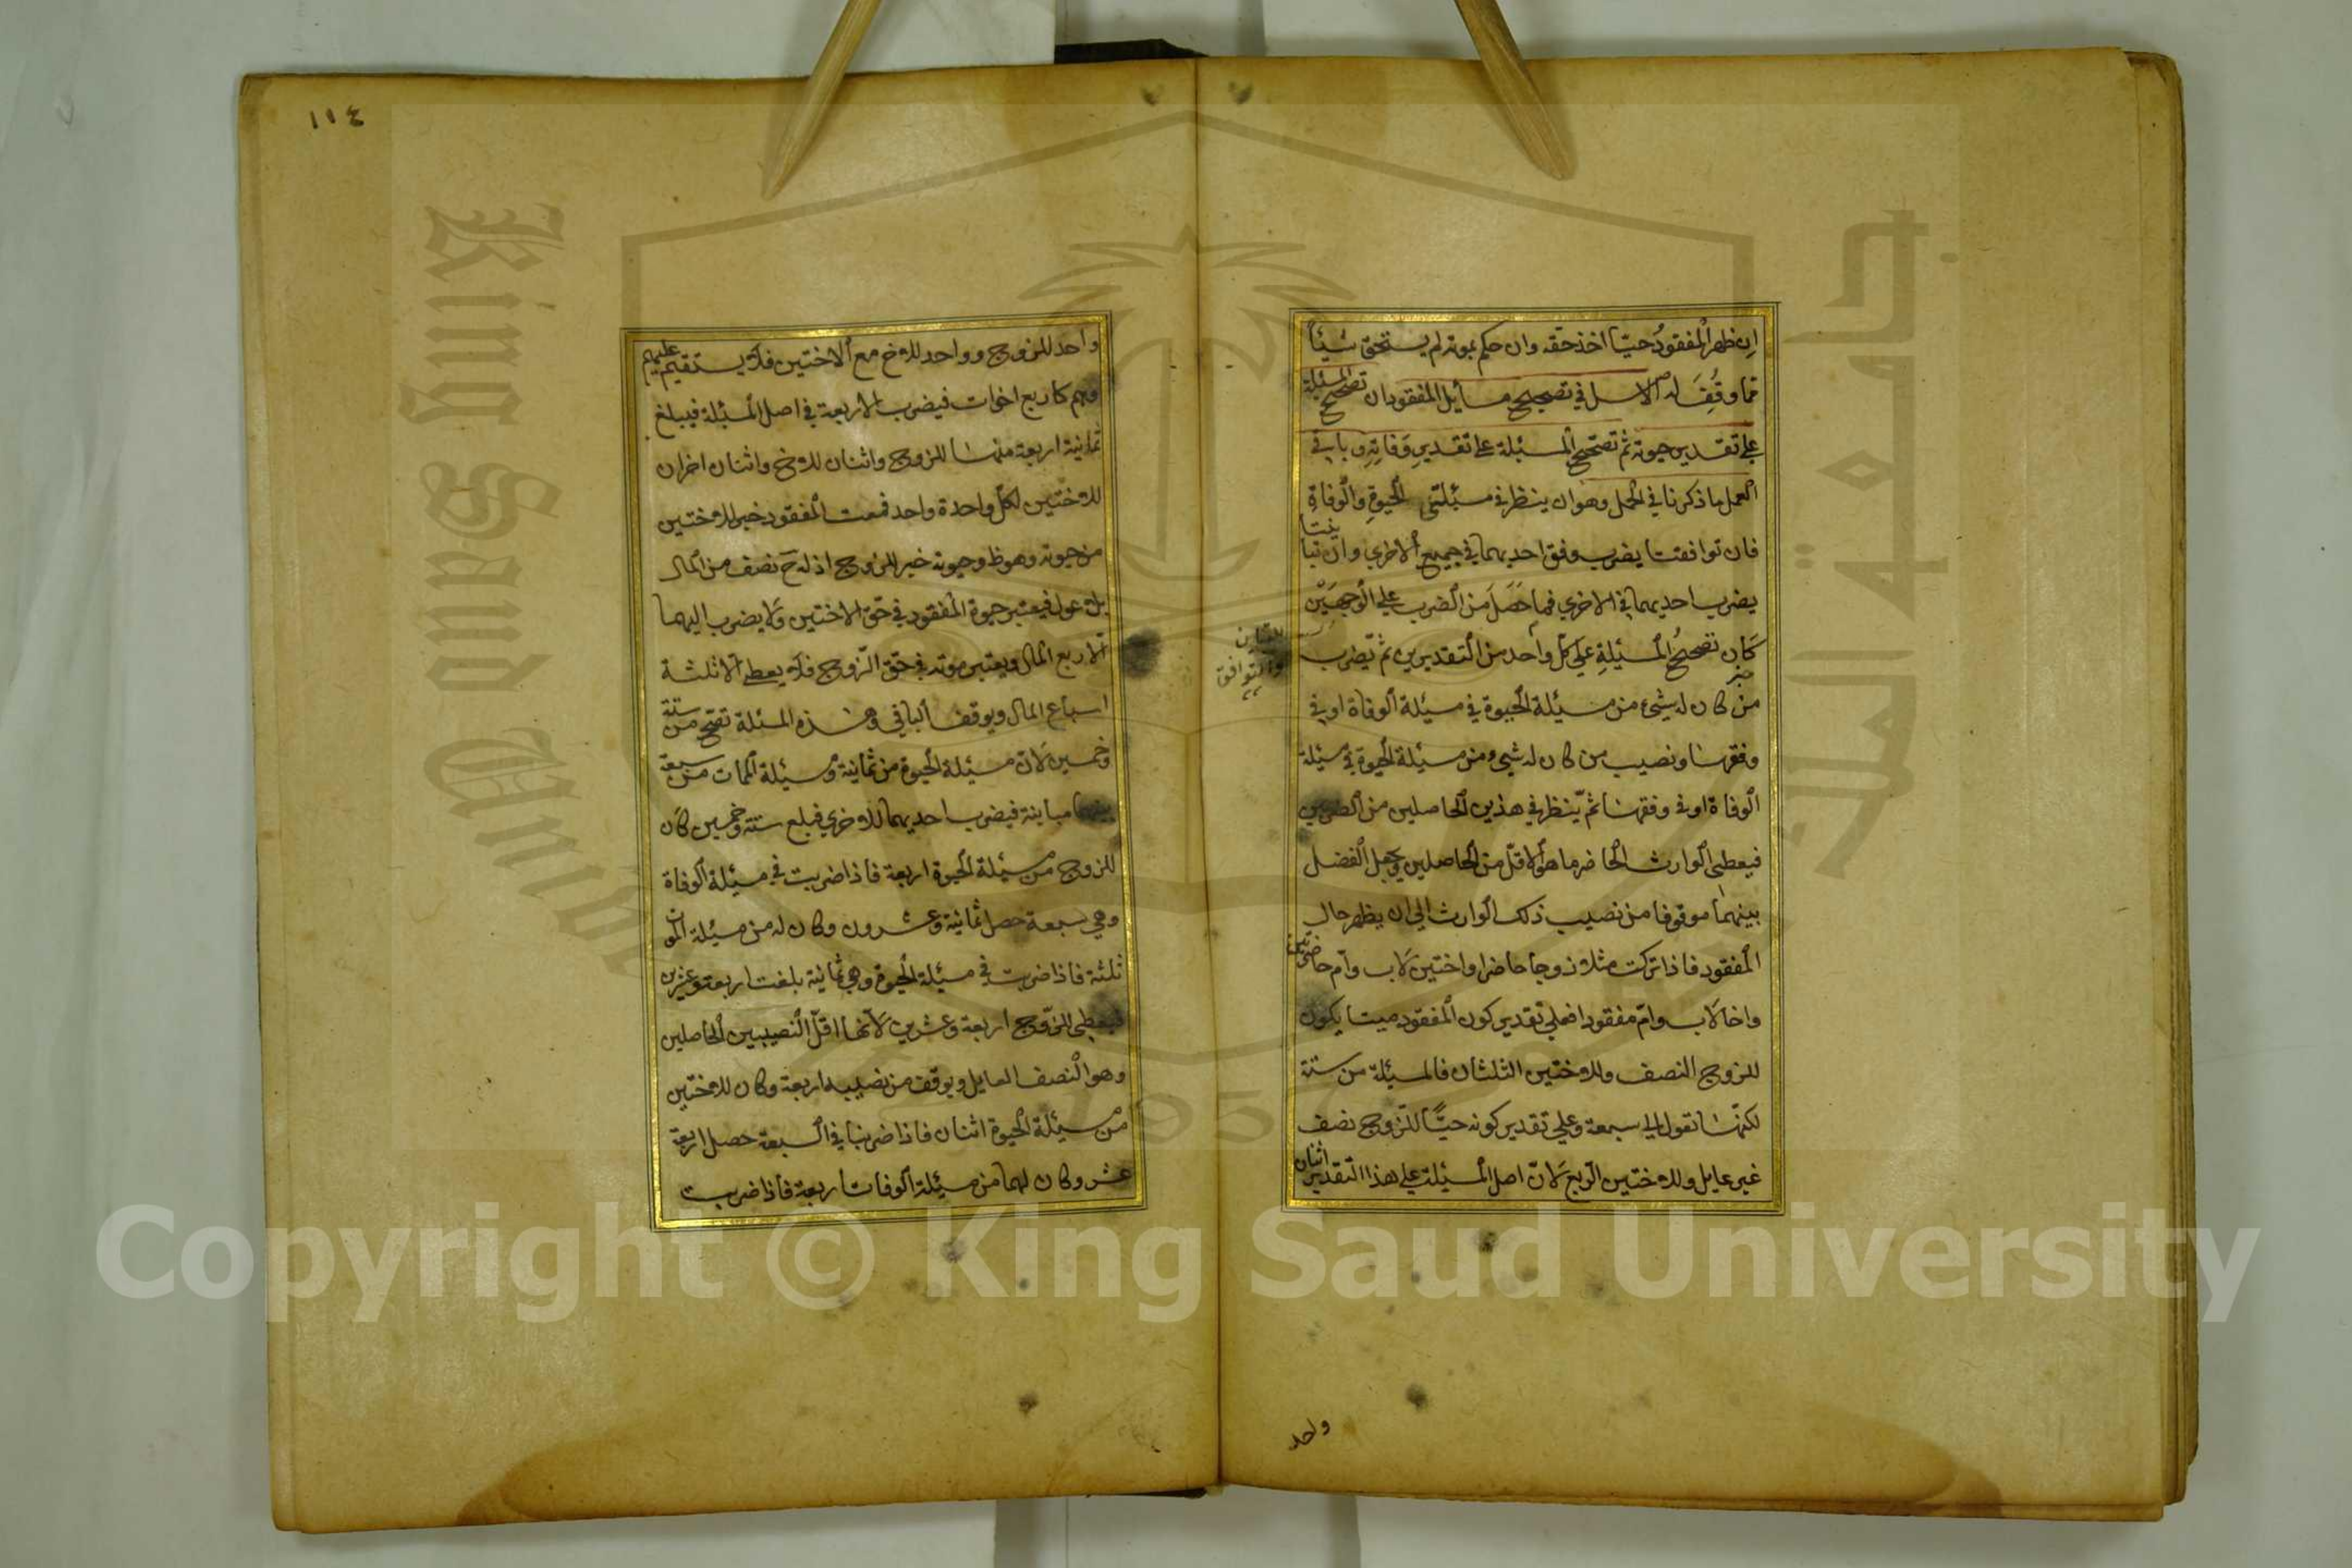 ان ظهر المفقود حيا اخذ حقه وان حكم بموته لم يستحق شيئا
مما وقف له الاصل في تصحيح مسايل المفقود ان تصحح المسئلة
على تقدير حيوته ثم تصحح المسئلة على تقدير وفاته وباقي
العمل ما ذكرنا في الحمل وهو ان ينظر في مسئلتى الحيوة والوفاة
فان توافقتا يضرب وفق احديهما في جميع الاخرى وان تباينتا
يضرب احديهما في الاخرى فما حصل من الضرب على الوجهين
للتباين
والتوافق
كان تصحيح المسئلة على كل واحد من التقديرين ثم يضرب
من كان له شيء من مسئلة الحيوة في مسئلة الوفاة او في
وفقها ونصيب من كان له شيء من مسئلة الحيوة في مسئلة
الوفاة او في وفقها ثم ينظر في هذين الحاصلين من الضربين
فيعطى الوارث الحاضر ما هو الاقل من الحاصلين ويجعل الفضل
بينهما موقوفا من نصيب ذلك الوارث الى ان يظهر حال
المفقود فاذا تركت مثلا زوجا حاضرا واختين لاب وام حاضرتين
واخا لاب وام مفقودا فعلى تقدير كون المفقود ميتا يكون
للزوج النصف وللاختين الثلثان فالمسئلة من ستة
لكنها تعول الى سبعة وعلى تقدير كونه حيا للزوج نصف
غير عايل وللاختين الربع لان اصل المسئلة على هذا التقدير اثنان
واحد
١١٤
واحد للزوج وواحد للاخ مع الاختين فلا يستقيم عليهم
وهم كاربع اخوات فيضرب الاربعة في اصل المسئلة فيبلغ
ثمانية اربعة منها للزوج واثنان للاخ واثنان اخران
للاختين لكل واحدة واحد فموت المفقود خير للاختين
من حيوته وهو ظ وحيوته خير للزوج اذ له ح نصف من المال
بلا عول فيعتبر حيوة المفقود في حق الاختين ولا يضرب اليهما
الا ربع المال ويعتبر موته في حق الزوج فلا يعطى الا ثلثة
اسباع المال ويوقف الباقي وهذه المسئلة تصح من ستة
وخمسين لان مسئلة الحيوة من ثمانية ومسئلة الممات من سبعة
بينهما مباينة فيضرب احديهما للاخرى فبلغ ستة وخمسين كان
للزوج من مسئلة الحيوة اربعة فاذا ضربت في مسئلة الوفاة
وهي سبعة حصل ثمانية وعشرون وكان له من مسئلة الموت
ثلثة فاذا ضربت في مسئلة الحيوة وهي ثمانية بلغت اربعة وعشرين
فيعطى الزوج اربعة وعشرين لانها اقل النصيبين الحاصلين
وهو النصف العايل ويوقف من نصيبه اربعة وكان للاختين
من مسئلة الحيوة اثنان فاذا ضربنا في السبعة حصل اربعة
عشر وكان لهما من مسئلة الوفات اربعة فاذا ضربت
Copyright © King Saud University
King Saud University
جامعة الملك
1957